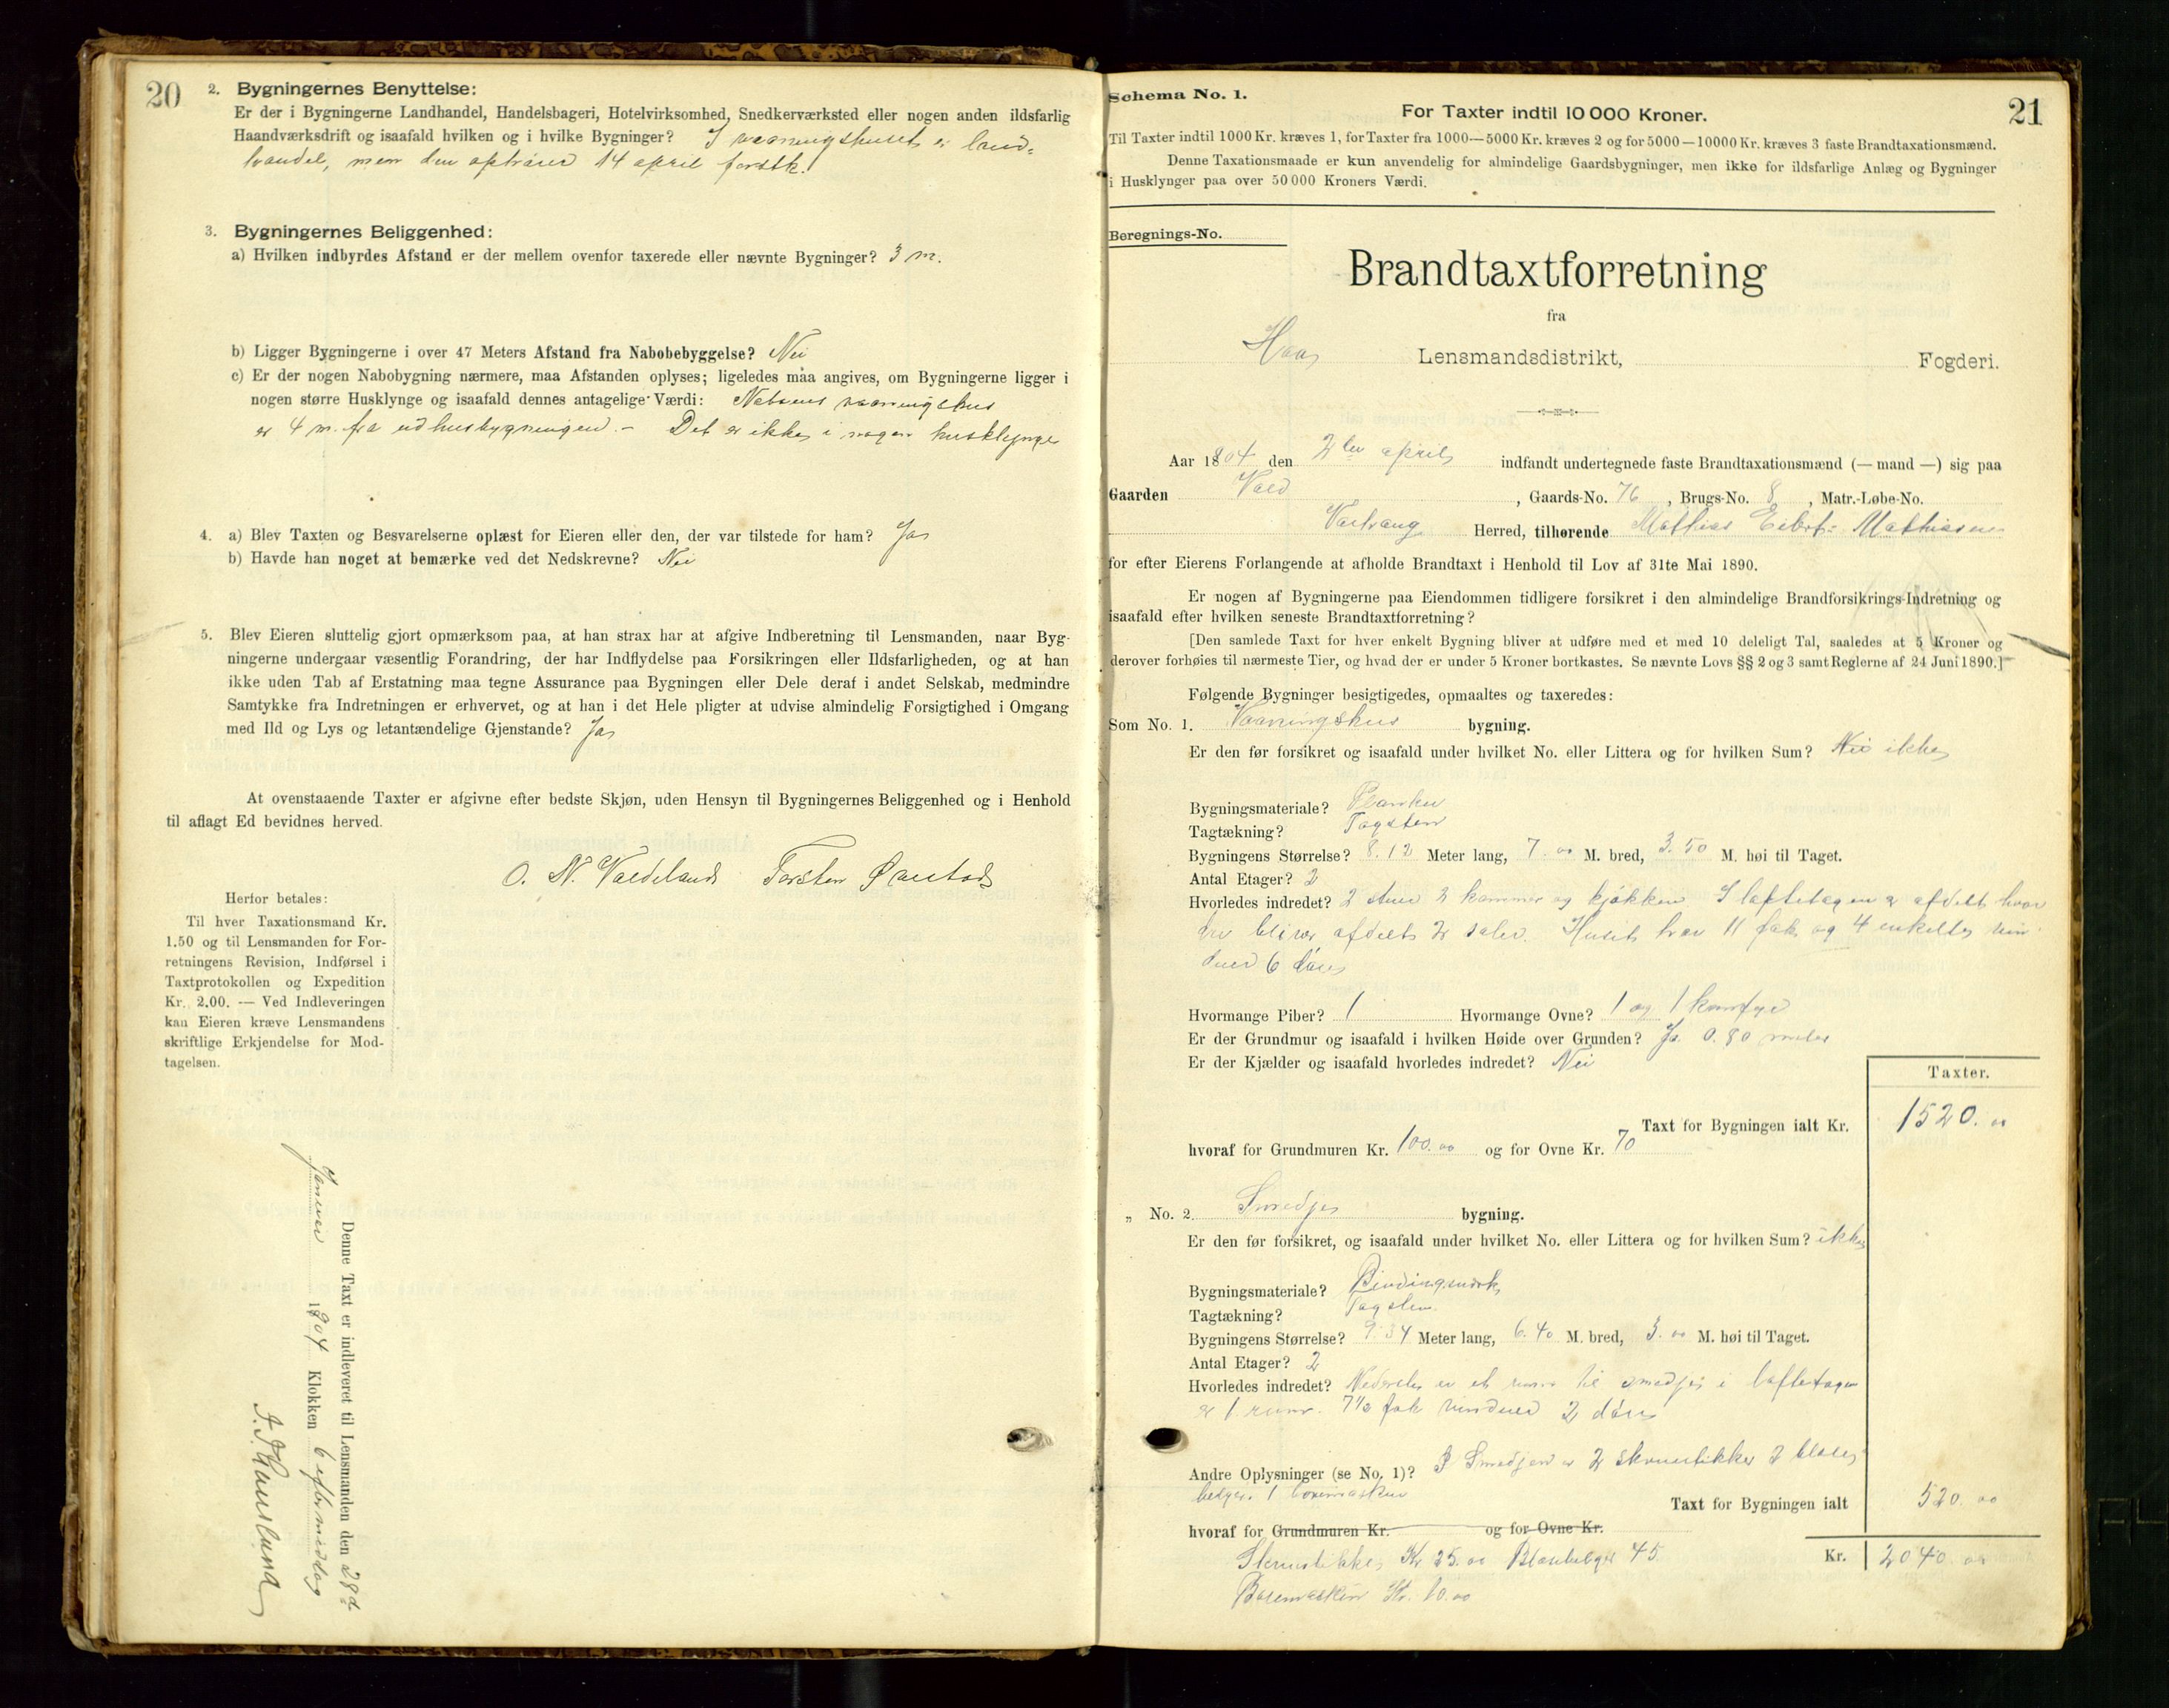 20
2. Bygningernes Benyttelse:
Er der i Bygningerne Landhandel, Handelsbageri, Hotelvirksomhed, Snedkerværksted eller nogen anden ildsfarlig
Haandværksdrift og isaafald hvilken og i hvilke Bygninger? I vaaningshuset er land-
handel, men den ophører 14 april førstk.
3. Bygningernes Beliggenhed:
a) Hvilken indbyrdes Afstand er der mellem ovenfor taxerede eller nævnte Bygninger? 3 m.
b) Ligger Bygningerne i over 47 Meters Afstand fra Nabobebyggelse? Nei
c) Er der nogen Nabobygning nærmere, maa Afstanden oplyses; ligeledes maa angives, om Bygningerne ligger i
nogen større Husklynge og isaafald dennes antagelige Værdi: vaaningshus
er 4 m. fra udhusbygningen. – Det er ikke i nogen husklynge
4. a) Blev Taxten og Besvarelserne oplæst for Eieren eller den, der var tilstede for ham? Ja
b) Havde han noget at bemærke ved det Nedskrevne? Nei
5. Blev Eieren sluttelig gjort opmærksom paa, at han strax har at afgive Indberetning til Lensmanden, naar Byg-
ningerne undergaar væsentlig Forandring, der har Indflydelse paa Forsikringen eller Ildsfarligheden, og at han
ikke uden Tab af Erstatning maa tegne Assurance paa Bygningen eller Dele deraf i andet Selskab, medmindre
Samtykke fra Indretningen er erhvervet, og at han i det Hele pligter at udvise almindelig Forsigtighed i Omgang
med Ild og Lys og letantændelige Gjenstande? Ja
At ovenstaaende Taxter er afgivne efter bedste Skjøn, uden Hensyn til Bygningernes Beliggenhed og i Henhold
til aflagt Ed bevidnes herved.
O. N. Valdeland Torsten
Herfor betales:
Til hver Taxationsmand Kr.
1.50 og til Lensmanden for For-
retningens Revision, Indførsel i
Taxtprotokollen og Expedition
Kr. 2.00. — Ved Indleveringen
kan Eieren kræve Lensmandens
skriftlige Erkjendelse for Mod-
tagelsen.
Denne Taxt er indleveret til Lensmanden den 28d
1904 Klokken 6 eftermiddag
Schema No. 1.
21
For Taxter indtil 10 000 Kroner.
Til Taxter indtil 1000 Kr. kræves 1, for Taxter fra 1000—5000 Kr. kræves 2 og for 5000—10000 Kr. kræves 3 faste Brandtaxationsmænd.
Denne Taxationsmaade er kun anvendelig for almindelige Gaardsbygninger, men ikke for ildsfarlige Anlæg og Bygninger
i Husklynger paa over 50 000 Kroners Værdi.
Beregnings-No.
Brandtaxtforretning
fra
Haa Lensmandsdistrikt, Fogderi.
Aar 1804 den 2den april indfandt undertegnede faste Brandtaxationsmænd (— mand —) sig paa
Gaarden Vald, Gaards-No. 76, Brugs-No. 8, Matr.-Løbe-No.
Herred, tilhørende Mathias Eibert Mathiasen
for efter Eierens Forlangende at afholde Brandtaxt i Henhold til Lov af 31te Mai 1890.
Er nogen af Bygningerne paa Eiendommen tidligere forsikret i den almindelige Brandforsikrings-Indretning og
isaafald efter hvilken seneste Brandtaxtforretning?
[Den samlede Taxt for hver enkelt Bygning bliver at udføre med et med 10 deleligt Tal, saaledes at 5 Kroner og
derover forhøies til nærmeste Tier, og hvad der er under 5 Kroner bortkastes. Se nævnte Lovs §§ 2 og 3 samt Reglerne af 24 Juni 1890.]
Følgende Bygninger besigtigedes, opmaaltes og taxeredes:
Som No. 1. Vaaningshus bygning.
Er den før forsikret og isaafald under hvilket No. eller Littera og for hvilken Sum? Nei ikke
Bygningsmateriale? Planker
Tagtækning? Tagsten
Bygningens Størrelse? 8.12 Meter lang, 7.00 M. bred, 3.50 M. høi til Taget.
Antal Etager? 2
Hvorledes indredet? 2 stuer 2 kammer og kjøkken I loftetagen er afdelt hvor
der bliver afdelt 2 saler. Huset har 11 fak og 4 enkelte vin-
duer 6 døre
Hvormange Piber? 1 Hvormange Ovne? 1 og 1 komfyr
Er der Grundmur og isaafald i hvilken Høide over Grunden? Ja 0.80 meter
Er der Kjælder og isaafald hvorledes indredet? Nei
Taxter.
Taxt for Bygningen ialt Kr. 1520.00
hvoraf for Grundmuren Kr. 100.00 og for Ovne Kr. 70
„ No. 2. Smedje bygning.
Er den før forsikret, og isaafald under hvilket No. eller Littera og for hvilken Sum? ikke
Bygningsmateriale? Bindingsverk
Tagtækning? Tagsten
Bygningens Størrelse? 9.34 Meter lang, 6.40 M. bred, 3.00 M. høi til Taget.
Antal Etager? 2
Hvorledes indredet? Nederste er et rum til smedje i loftetagen
er 1 rum. 7½ fak vinduer 2 døre
Andre Oplysninger (se No. 1)? I Smedjen er 2 skruestikker 2 blase-
belger 1 boremaskin
Taxt for Bygningen ialt 520.00
hvoraf for Grundmuren Kr. og for Ovne Kr.
Skruestikke Kr 25.00 Blæsebelger 45
Kr. 2040.00
Boremaskin Kr. 10.00